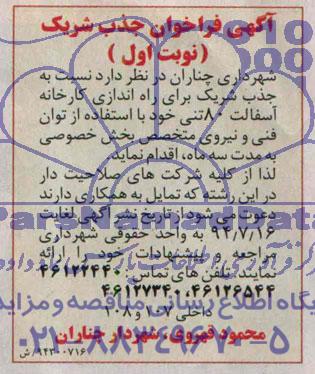 آگهی فراخوان جذب شریک
(نوبت اول)
شهرداری چناران در نظر دارد نسبت به
جذب شریک برای راه اندازی کارخانه
آسفالت ۸۰تنی خود با استفاده از توان
فنی و نیروی متخصص بخش خصوصی
به مدت سه ماه، اقدام نماید.
لذا از کلیه شرکت های صلاحیت دار
در این رشته که تمایل به همکاری دارند
دعوت می شود از تاریخ نشر آگهی لغایت
۹۴/۷/۱۶ به واحد حقوقی شهرداری
مراجعه و پیشنهادات خود را ارائه
نمایند. تلفن های تماس: ۴۶۱۲۲۴۴۰
۴۶۱۲۷۳۴۰،۴۶۱۲۶۵۴۴
داخلی ۱۰۷ و ۱۰۸
محمود قهروی، شهردار چناران
۹۴۳۰۰۷۱۶/ش